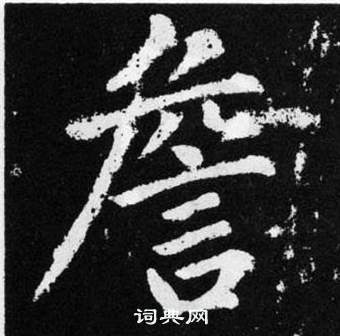 詹
词典网